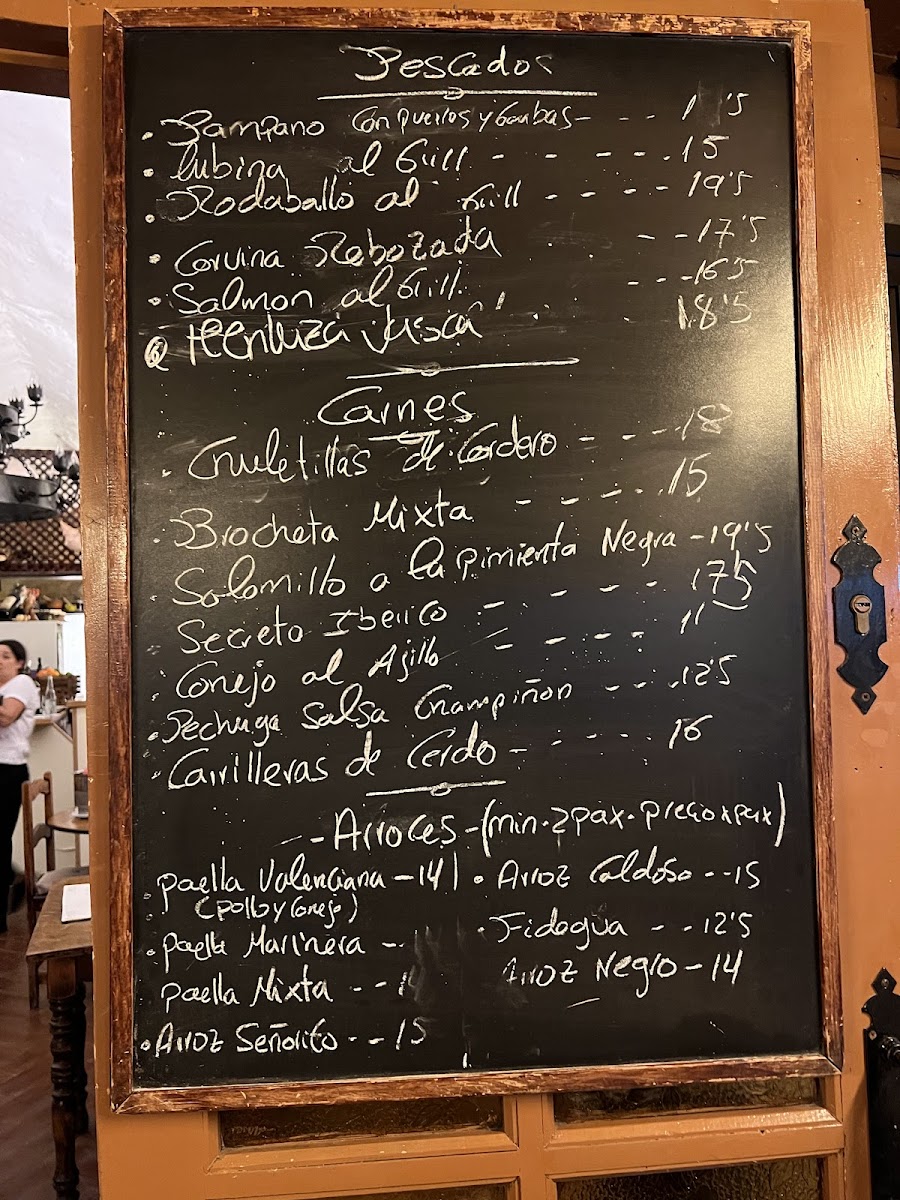 Pescados
Pampano con puerros y Gambas - - - 1 '5
Lubina al Grill - - - - - 15
Rodaballo al Grill - - - - 19'5
Corvina Rebozada - - 17'5
Salmon al Grill - - - 16'5
Merluza Vasca 18'5
Carnes
Chuletillas de Cordero - - - 18
Brocheta Mixta - - - - 15
Solomillo a la pimienta Negra - 19'5
Secreto Iberico - - - - - 17'5
Conejo al Ajillo - - - - 11
Pechuga Salsa Champiñon - - - 12'5
Carrilleras de Cerdo - - - - 16
- Arroces - (min. 2 pax. precio x pax)
paella Valenciana - 14
(pollo y Conejo)
paella Marinera - -
paella Mixta - -
Arroz Señorito - - 15
Arroz Caldoso - - 15
Fidegua - - 12'5
Arroz Negro - 14